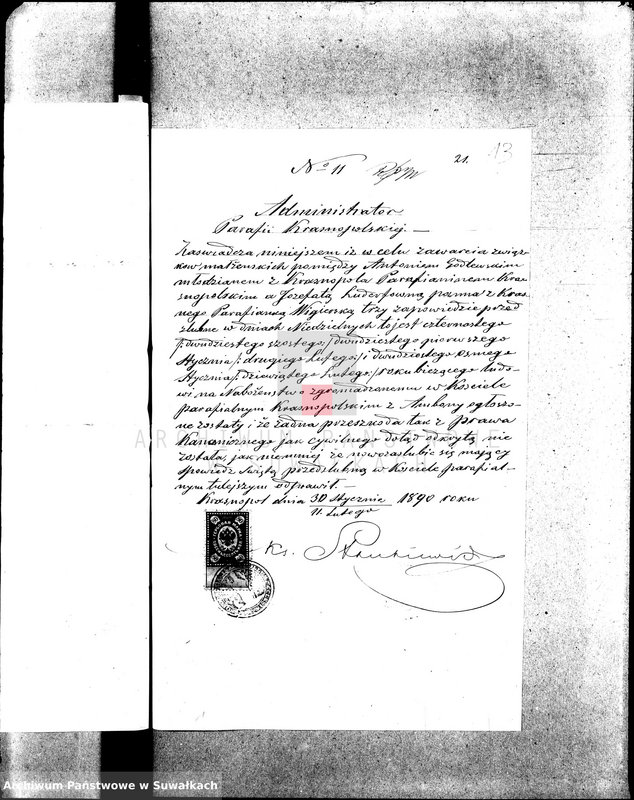 No 11
21. 13
Administrator
Parafii Krasnopolskiej. —
Zaswiadcza niniejszem iż w celu zawarcia związ-
ków małżenskich pomiędzy Antonim Godlewskim
młodzianem z Krasnopola Parafianinem Kra-
snopolskim a Jozefatą panną z Kras-
nego Parafianką Wigierską trzy zapowiedzie przed
slubne w dniach Niedzielnych to jest czternastego
/: dwudziestego szostego:/ dwudziestego pierwszego
Stycznia /: drugiego Lutego:/ i dwudziestego osmego
Stycznia /: dziewiątego Lutego:/ roku bieżącego ludo-
wi na Nabożenstwo zgromadzonemu w Kosciele
parafialnym Krasnopolskim z Ambony ogłoszo-
ne zostały i że żadna przeszkoda tak z prawa
Kanonicznego jak cywilnego dotąd odkrytą nie
została, jak niemniej że nowozaslubic się mający
spowiedz Swiętą przedslubną w Kosciele parafial-
nym tutejszym odprawił. —
Krasnopol dnia 30 Stycznia 1890 roku
11 Lutego
Ks.
Archiwum Państwowe w Suwałkach